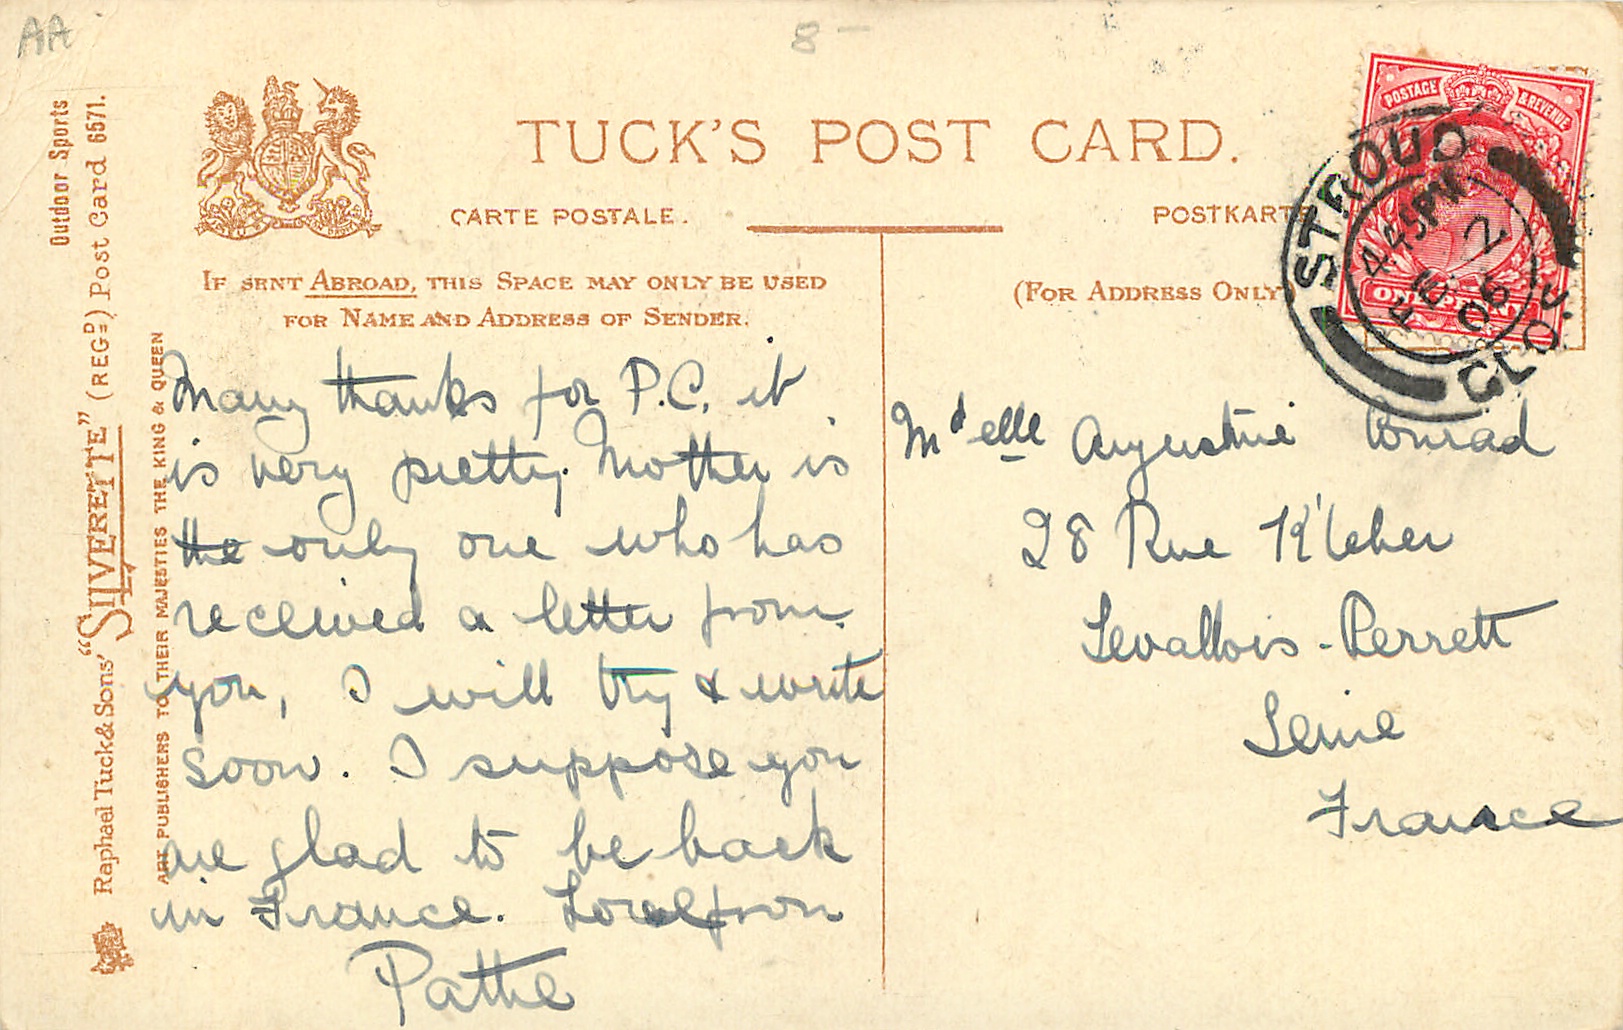 AA
8 -
Outdoor Sports
Raphael Tuck & Sons' "SILVERETTE" (REGD) Post Card 6571.
ART PUBLISHERS TO THEIR MAJESTIES THE KING & QUEEN
TUCK'S POST CARD.
CARTE POSTALE.
POSTKARTE
IF SENT ABROAD, THIS SPACE MAY ONLY BE USED
FOR NAME AND ADDRESS OF SENDER.
(FOR ADDRESS ONLY)
POSTAGE & REVENUE
STROUD
4.45PM
FE 2
06
GLOS
Many thanks for P.C. it
is very pretty. Mother is
the only one who has
received a letter from
you, I will try & write
soon. I suppose you
are glad to be back
in France. Love from
Pathe
Mdelle Augustine Conrad
28 Rue K'leber
Levallois-Perrett
Seine
France